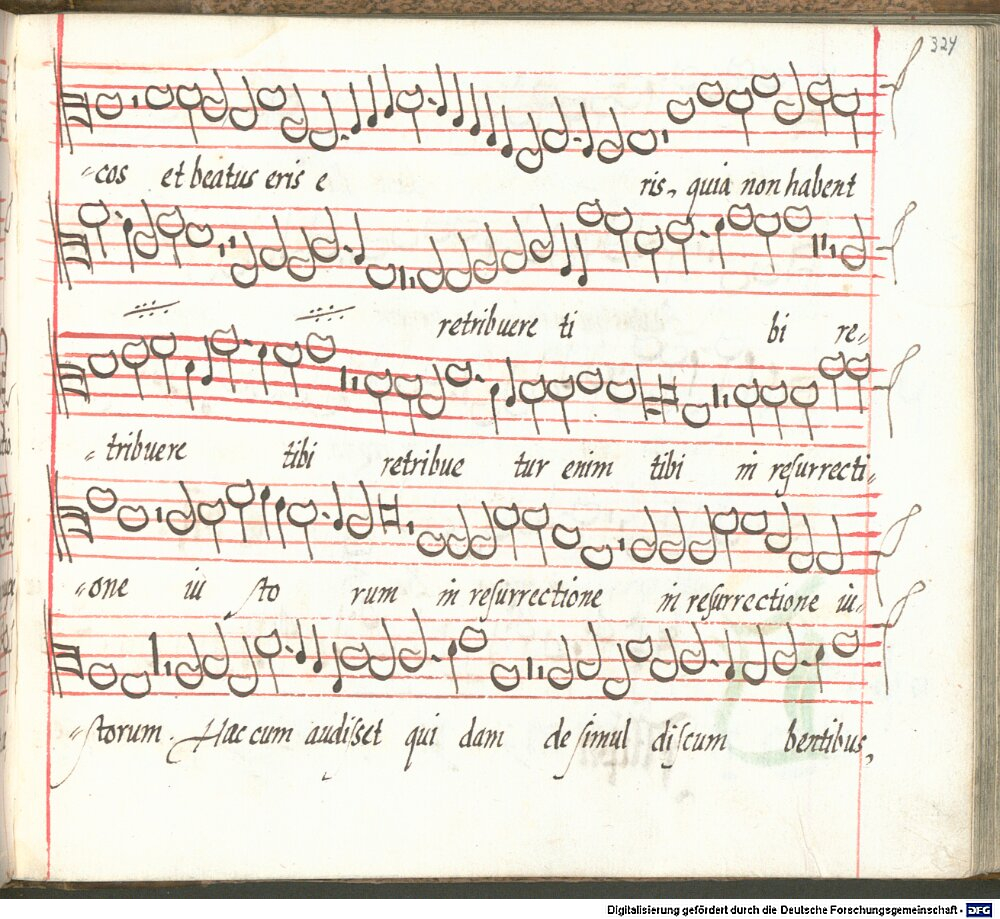 324
cos et beatus eris e ris, quia non habent
retribuere ti bi re-
tribuere tibi retribue tur enim tibi in resurrecti-
one iu sto rum in resurrectione in resurrectione iu-
storum. Haec cum audisset qui dam de simul discum bentibus,
Digitalisierung gefördert durch die Deutsche Forschungsgemeinschaft - DFG